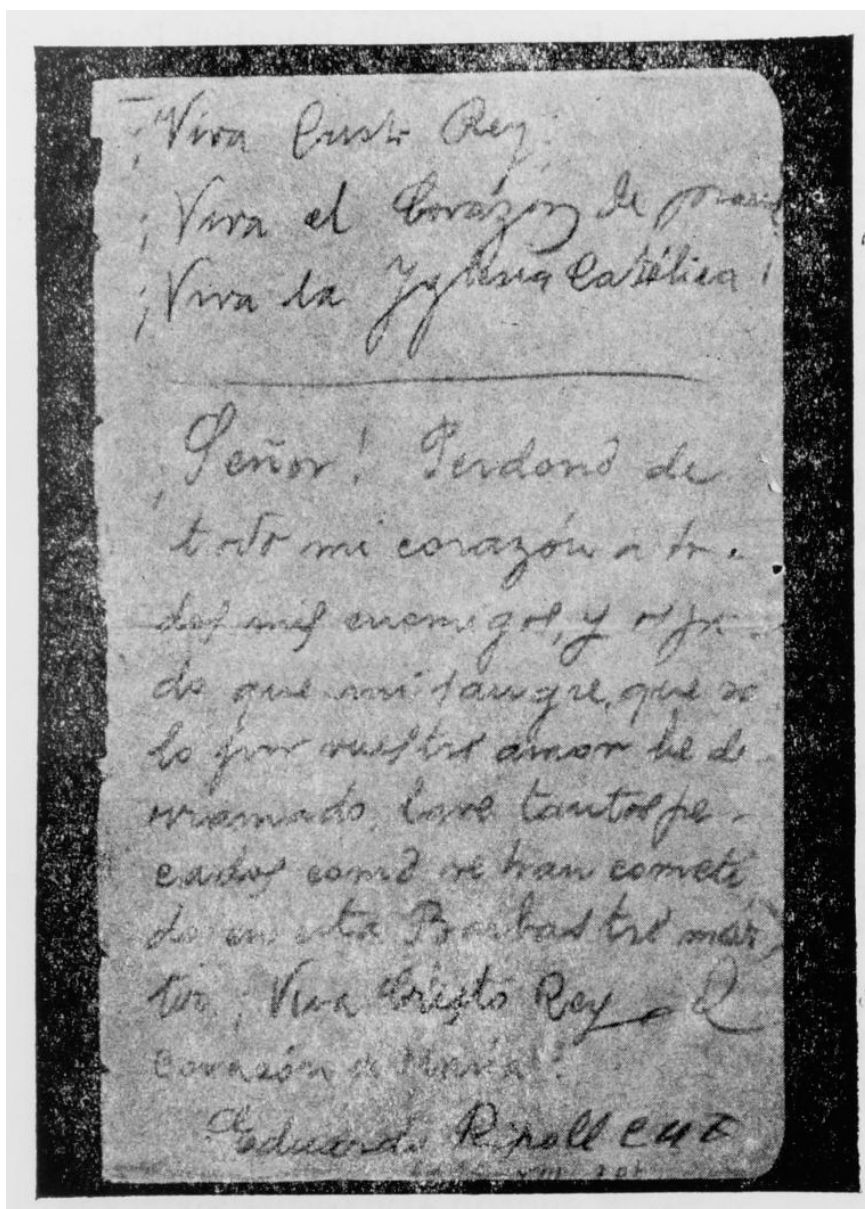 ¡Viva Cristo Rey!
¡Viva el Corazón de María
¡Viva la Yglesia Católica!
¡Señor! Perdono de
todo mi corazón a to-
dos mis enemigos, y os pi-
do que mi sangre, que so
lo por vuestro amor he de
rramado, lave tantos pe-
cados como se han cometi
do en esta Barbastro már
tir ¡Viva Cristo Rey y el
Corazón de María!
Eduardo Ripoll CMF